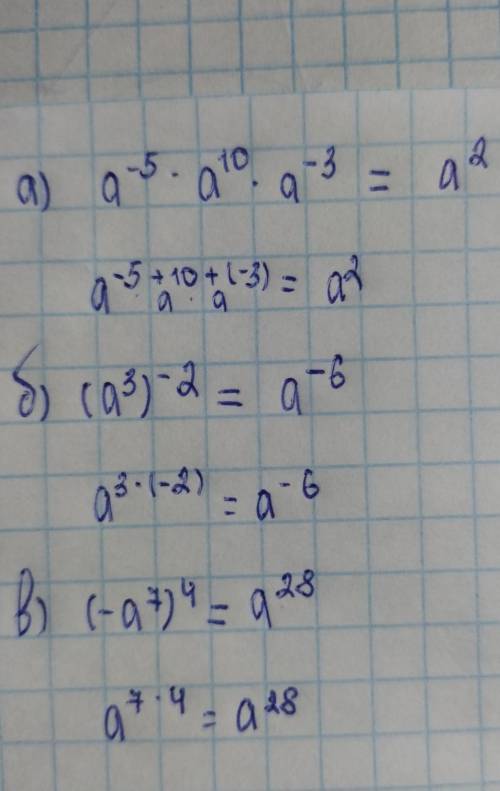 а) a⁻⁵ · a¹⁰ · a⁻³ = a²
a⁻⁵ ⁺ ¹⁰ ⁺ ⁽⁻³⁾ · a · a = a²
б) (a³)⁻² = a⁻⁶
a³ ˙ ⁽⁻²⁾ = a⁻⁶
в) (-a⁷)⁴ = a²⁸
a⁷ ˙ ⁴ = a²⁸